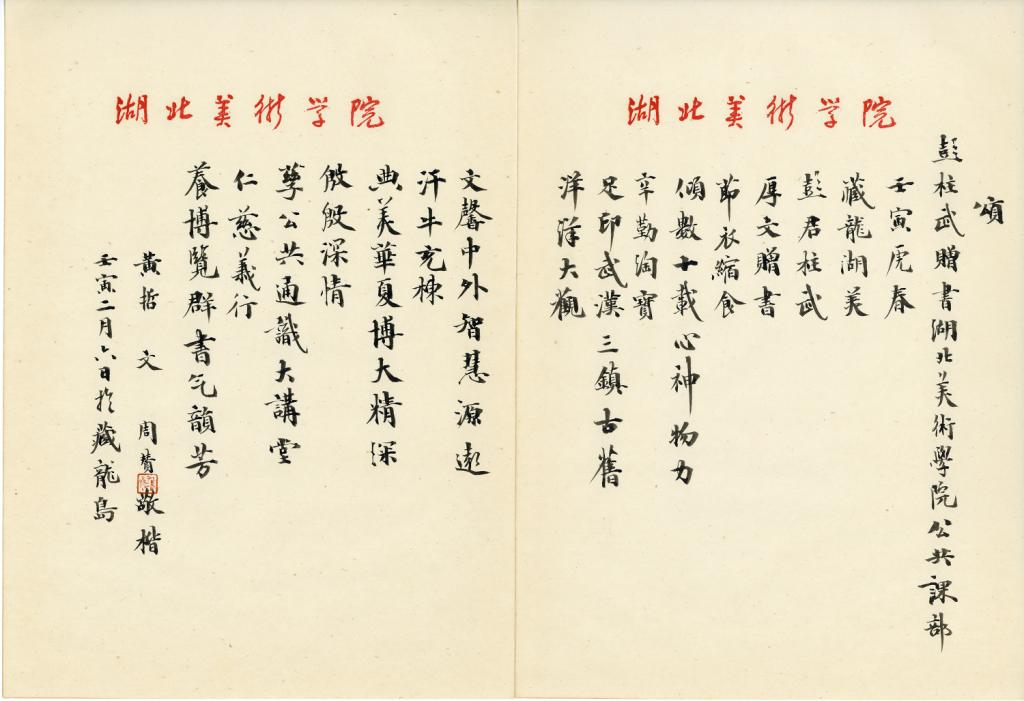 湖北美術学院
頌
彭柱武贈書湖北美術學院公共課部
壬寅虎春
藏龍湖美
彭君柱武
厚文贈書
節衣縮食
傾數十載心神物力
辛勤淘寶
足印武漢三鎮古舊
洋洋大觀
湖北美術学院
文馨中外智慧源遠
汗牛充棟
典美華夏博大精深
殷殷深情
擎公共通識大講堂
仁慈義行
養博覽群書气韻芳
黃哲 文 周贊 敬楷
壬寅二月六日於藏龍島